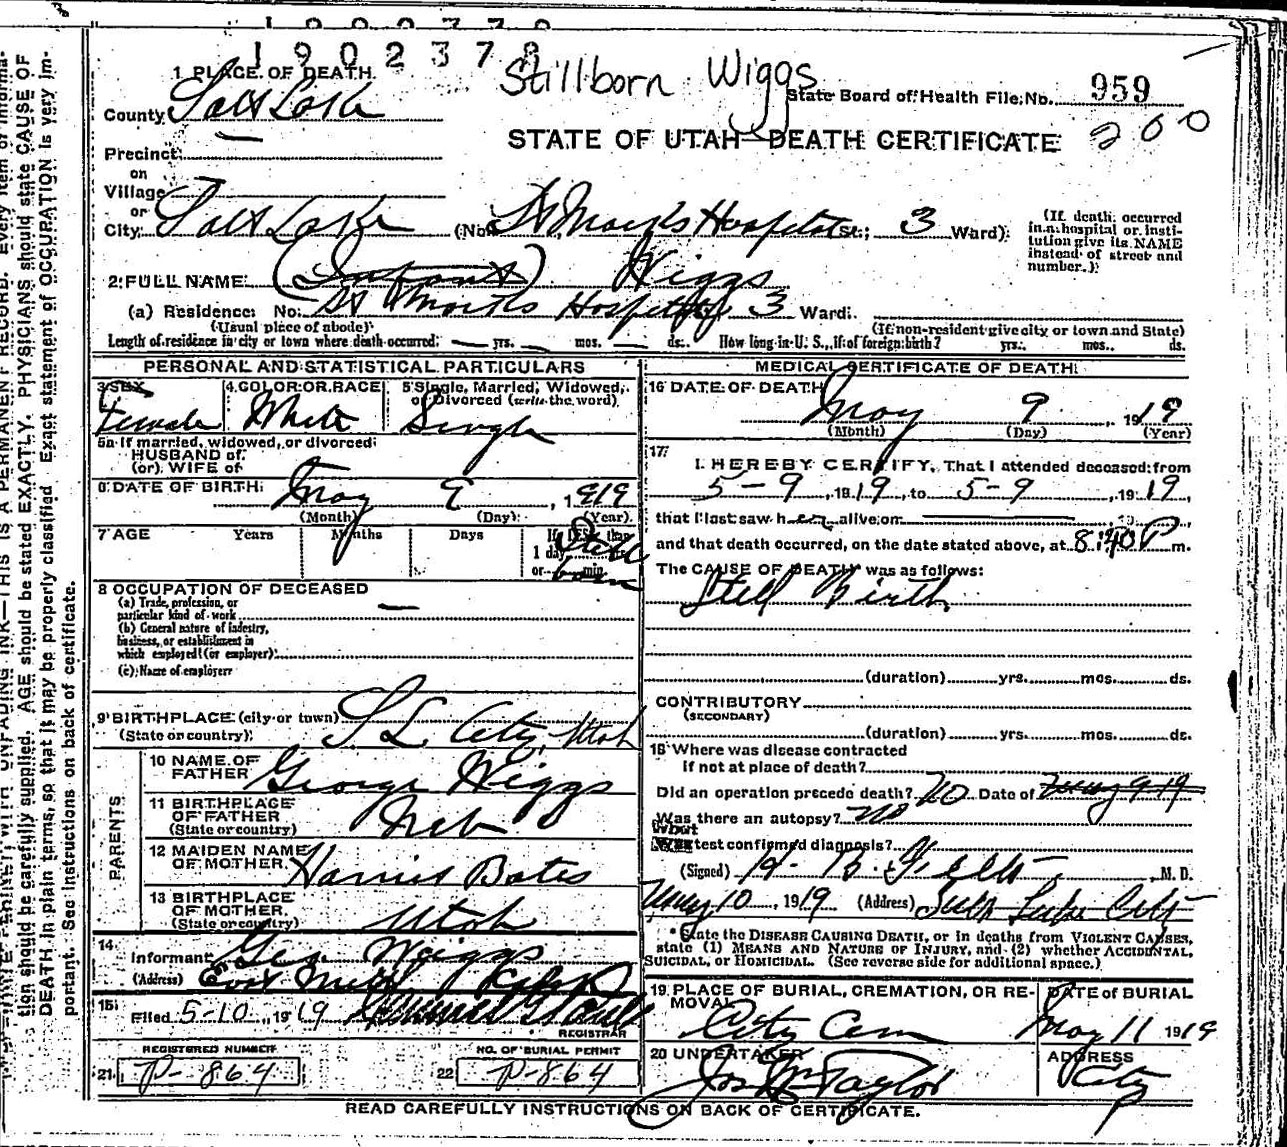 1902378
Stillborn Wiggs
1 PLACE OF DEATH
State Board of Health File No. 959
County Salt Lake
200
STATE OF UTAH—DEATH CERTIFICATE
Precinct
on
Village
or
City Salt Lake (No. St Mark's Hospital St.; 3 Ward)
(If death occurred in a hospital or institution give its NAME instead of street and number.)
2 FULL NAME (Infant) Wiggs
(a) Residence No. St Mark's Hospital 3 Ward.
(Usual place of abode) (If non-resident give city or town and State)
Length of residence in city or town where death occurred — yrs. — mos. — ds. How long in U. S., if of foreign birth? yrs. mos. ds.
PERSONAL AND STATISTICAL PARTICULARS
3 SEX Female
4 COLOR OR RACE White
5 Single, Married, Widowed, or Divorced (write the word) Single
5a If married, widowed, or divorced
HUSBAND of
(or) WIFE of
6 DATE OF BIRTH May 9, 1919
(Month) (Day) (Year)
7 AGE Years Months Days If LESS than 1 day hrs. or min. Still born
8 OCCUPATION OF DECEASED
(a) Trade, profession, or particular kind of work —
(b) General nature of industry, business, or establishment in which employed (or employer)
(c) Name of employer
9 BIRTHPLACE (city or town) S L City, Utah
(State or country)
PARENTS
10 NAME OF FATHER George Wiggs
11 BIRTHPLACE OF FATHER (State or country) Neb
12 MAIDEN NAME OF MOTHER Harriet Bates
13 BIRTHPLACE OF MOTHER (State or country) Utah
14 Informant Geo. Wiggs
(Address) East Mill
15 Filed 5-10, 1919
REGISTRAR
REGISTERED NUMBER
21 P-864
NO. OF BURIAL PERMIT
22 P-864
MEDICAL CERTIFICATE OF DEATH
16 DATE OF DEATH May 9, 1919
(Month) (Day) (Year)
17 I HEREBY CERTIFY, That I attended deceased from
5-9, 1919, to 5-9, 1919,
that I last saw her alive on — 19
and that death occurred, on the date stated above, at 8:40 P m.
The CAUSE OF DEATH was as follows:
Still Birth
(duration) yrs. mos. ds.
CONTRIBUTORY
(SECONDARY)
(duration) yrs. mos. ds.
18 Where was disease contracted
if not at place of death?
Did an operation precede death? No Date of May 9 19
Was there an autopsy? no
What test confirmed diagnosis?
(Signed) M. D.
May 10, 1919 (Address) Salt Lake City
* State the DISEASE CAUSING DEATH, or in deaths from VIOLENT CAUSES, state (1) MEANS AND NATURE OF INJURY, and (2) whether ACCIDENTAL, SUICIDAL, or HOMICIDAL. (See reverse side for additional space.)
19 PLACE OF BURIAL, CREMATION, OR REMOVAL City Cem
DATE of BURIAL May 11 1919
20 UNDERTAKER Jos Wm Taylor
ADDRESS City
READ CAREFULLY INSTRUCTIONS ON BACK OF CERTIFICATE.
THIS IS A PERMANENT RECORD. Every item of information should be carefully supplied. AGE should be stated EXACTLY. PHYSICIANS should state CAUSE OF DEATH in plain terms, so that it may be properly classified. Exact statement of OCCUPATION is very important. See instructions on back of certificate.